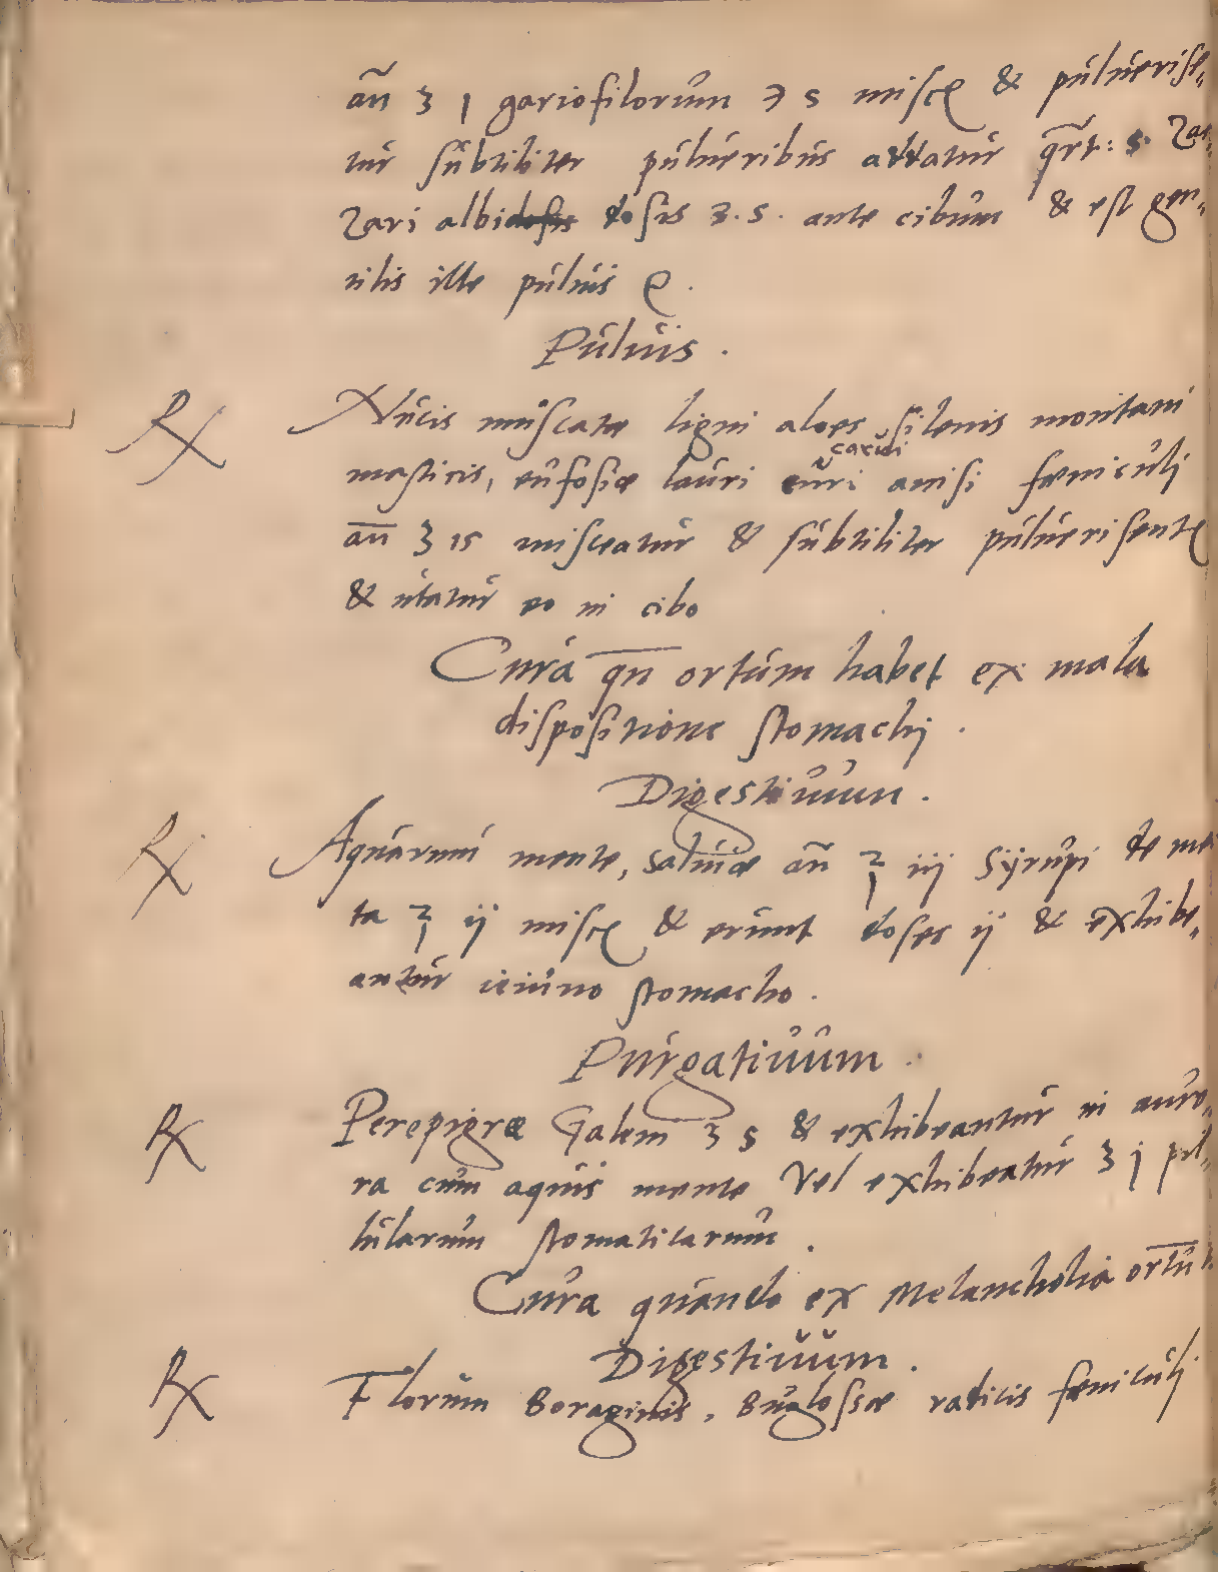 añ ʒ j gariofilorum ℈ s miscę & puluerise-
tur subtiliter pulueribus addatur qrt: s. Zac-
Zari albi dosis dosis ʒ. s. ante cibum & est gen-
tilis ille puluis
Puluis.
℞ Nucis muscate ligni aloes silenis montani
masticis, eufosiæ lauri carui anisi fæniculj
añ ʒ js misceatur & subtiliter puluerisentę
& utatur eo in cibo
Cura qn ortum habet ex mala
dispositione stomachj.
Digestiuum.
℞ Aquarum mente, saluiæ añ ℥ iij Syrupi de men
ta ℥ ij miscę & erunt doses ij & exhibe-
antur ieiuno stomacho.
Purgatiuum.
℞ Perepigræ Galem ʒ s & exhibeantur in auro-
ra cum aquis mente Vel exhibeatur ʒ j pil-
lularum stomaticarum.
Cura quando ex Melancholia ortũ h.
Digestiuum.
℞ Florum Boraginis, Buglossæ radicis fæniculj